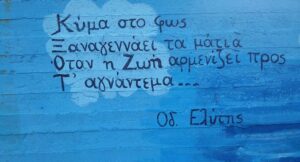 Κύμα στο φως
Ξαναγεννάει τα μάτια
Όταν η Ζωή αρμενίζει προς
Τ' αγνάντεμα...
Οδ. Ελύτης